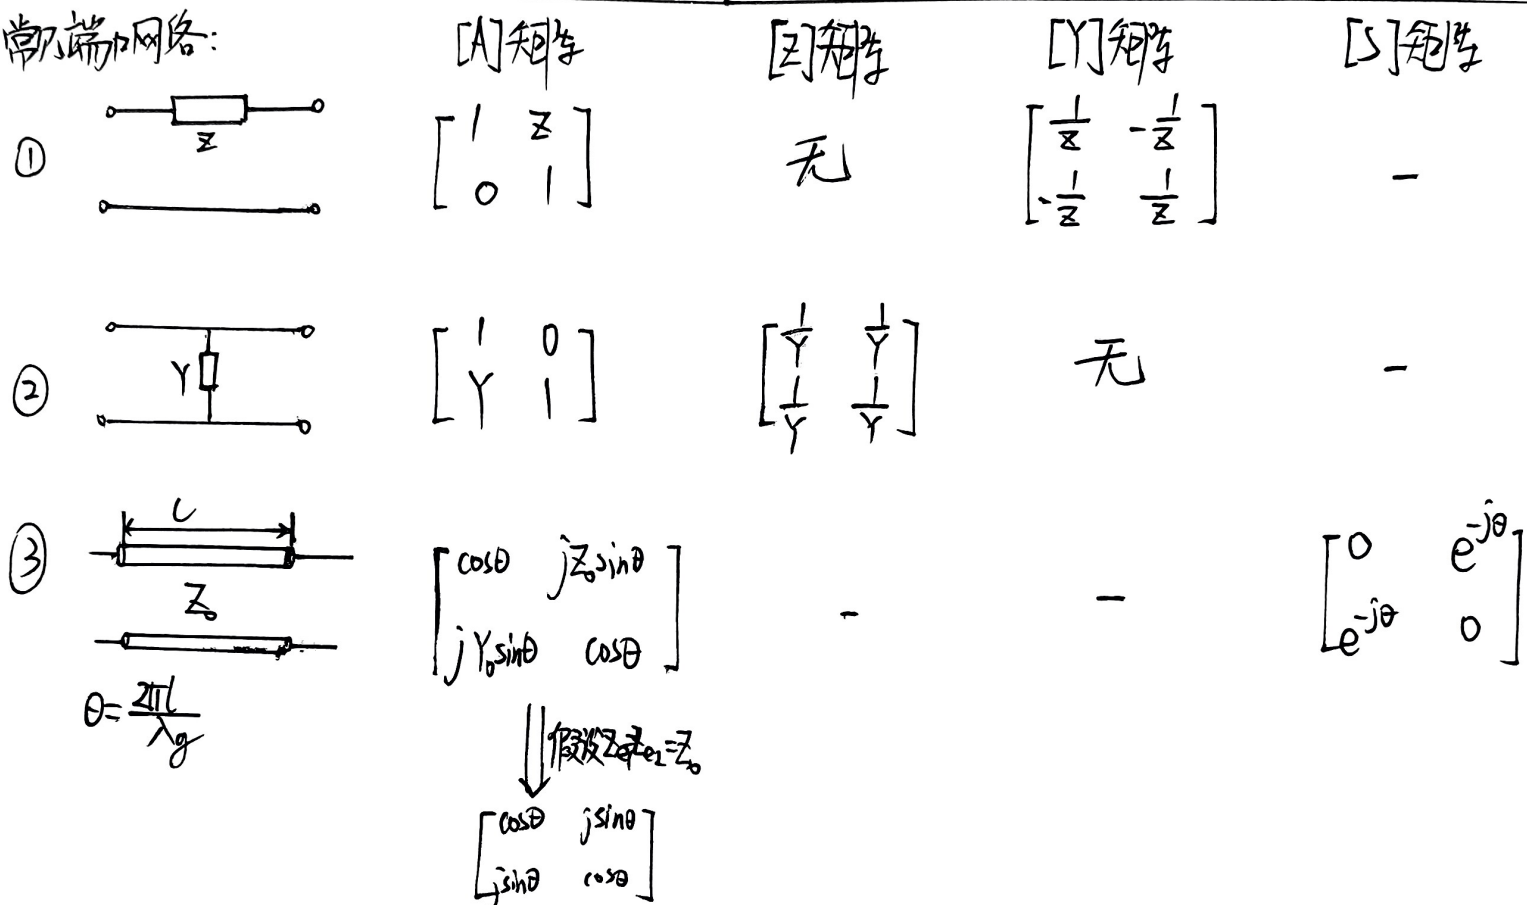 常见端口网络: [A]矩阵 [Z]矩阵 [Y]矩阵 [S]矩阵
① Z [1 Z; 0 1] 无 [1/Z -1/Z; -1/Z 1/Z] -
② Y [1 0; Y 1] [1/Y 1/Y; 1/Y 1/Y] 无 -
③ l Z₀ [cosθ jZ₀sinθ; jY₀sinθ cosθ] - - [0 e^{-jθ}; e^{-jθ} 0]
θ=2πl/λg
假设Ze₂=Z₀
[cosθ jsinθ; jsinθ cosθ]